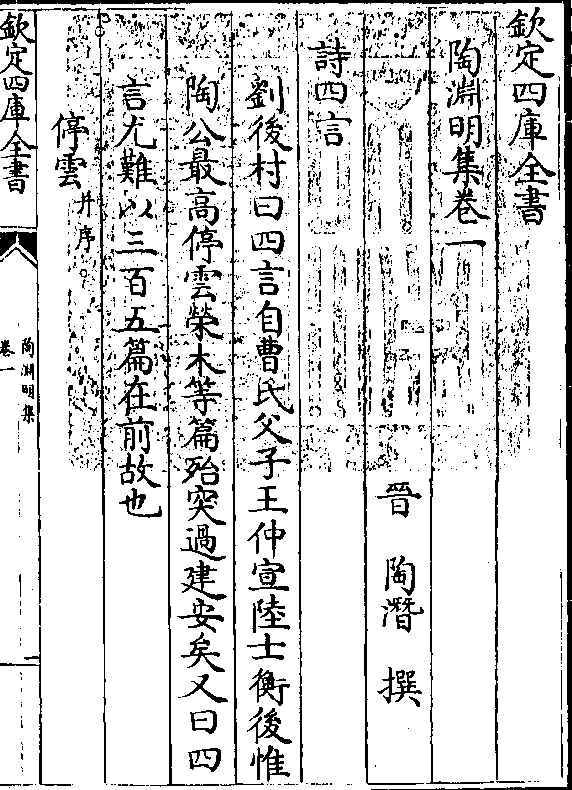 欽定四庫全書
陶淵明集卷一
晉 陶潛 撰
詩四言
劉後村曰四言自曹氏父子王仲宣陸士衡後惟
陶公最高停雲榮木等篇殆突過建安矣又曰四
言尤難以三百五篇在前故也
停雲并序
欽定四庫全書
陶淵明集
卷一